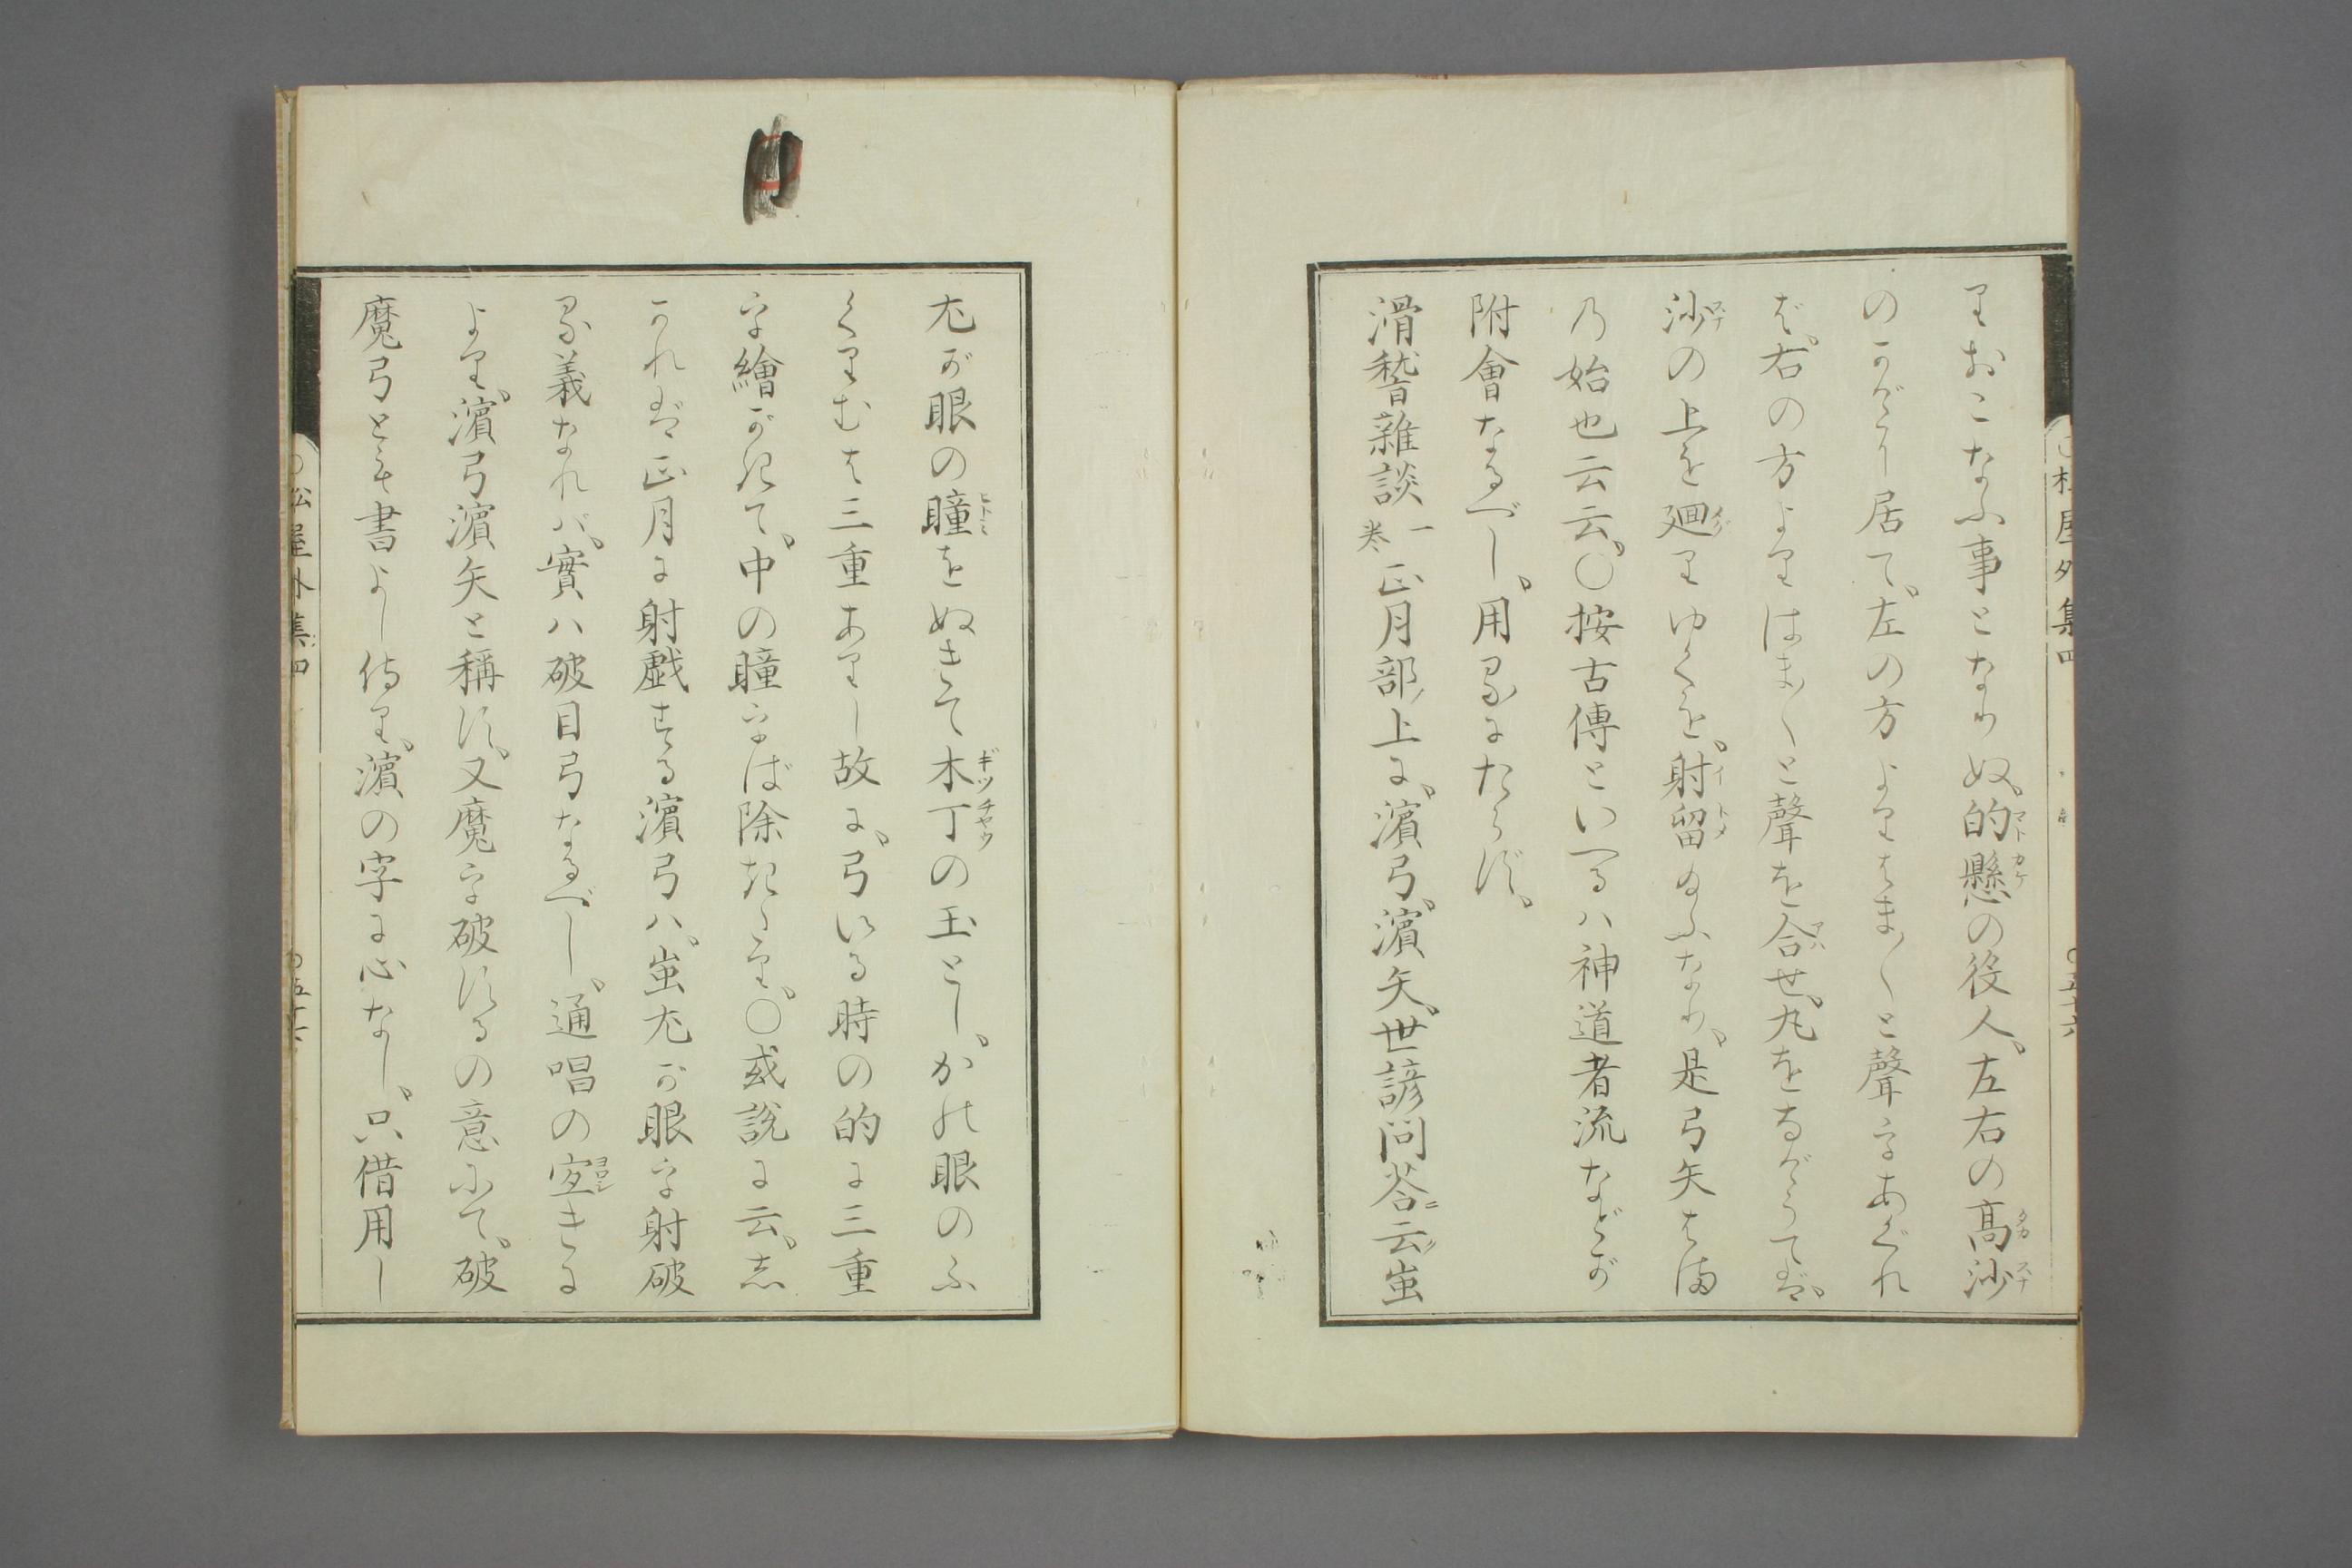 りおこなふ事となりぬ、的懸の役人、左右の高沙
のかげに居て、左の方よりはま〳〵と聲をあぐれ
ば、右の方よりはま〳〵と聲を合せ、丸をなげうてば、
沙の上を廻りゆくを、射留給ふなり、是弓矢はま
乃始也云云、○按古傳といへるハ神道者流などが
附會なるべし、用るにたらず、
滑稽雜談一卷正月部ノ上に、濱弓、濱矢、世諺問答ニ云ク蚩
尤が眼の瞳をぬきて木丁の玉とし、かの眼のふ
くりむは三重ありし故に、弓いる時の的に三重
を繪がきて、中の瞳をば除きたり、○或説に云、志
かれば正月に射戯する濱弓ハ、蚩尤が眼を射破
る義なれバ、實ハ破目弓なるべし、通唱の宜きに
より、濱弓濱矢と稱す、又魔を破するの意にて、破
魔弓とも書よし侍り、濱の字に心なし、只借用し
松屋外集四
○五十六